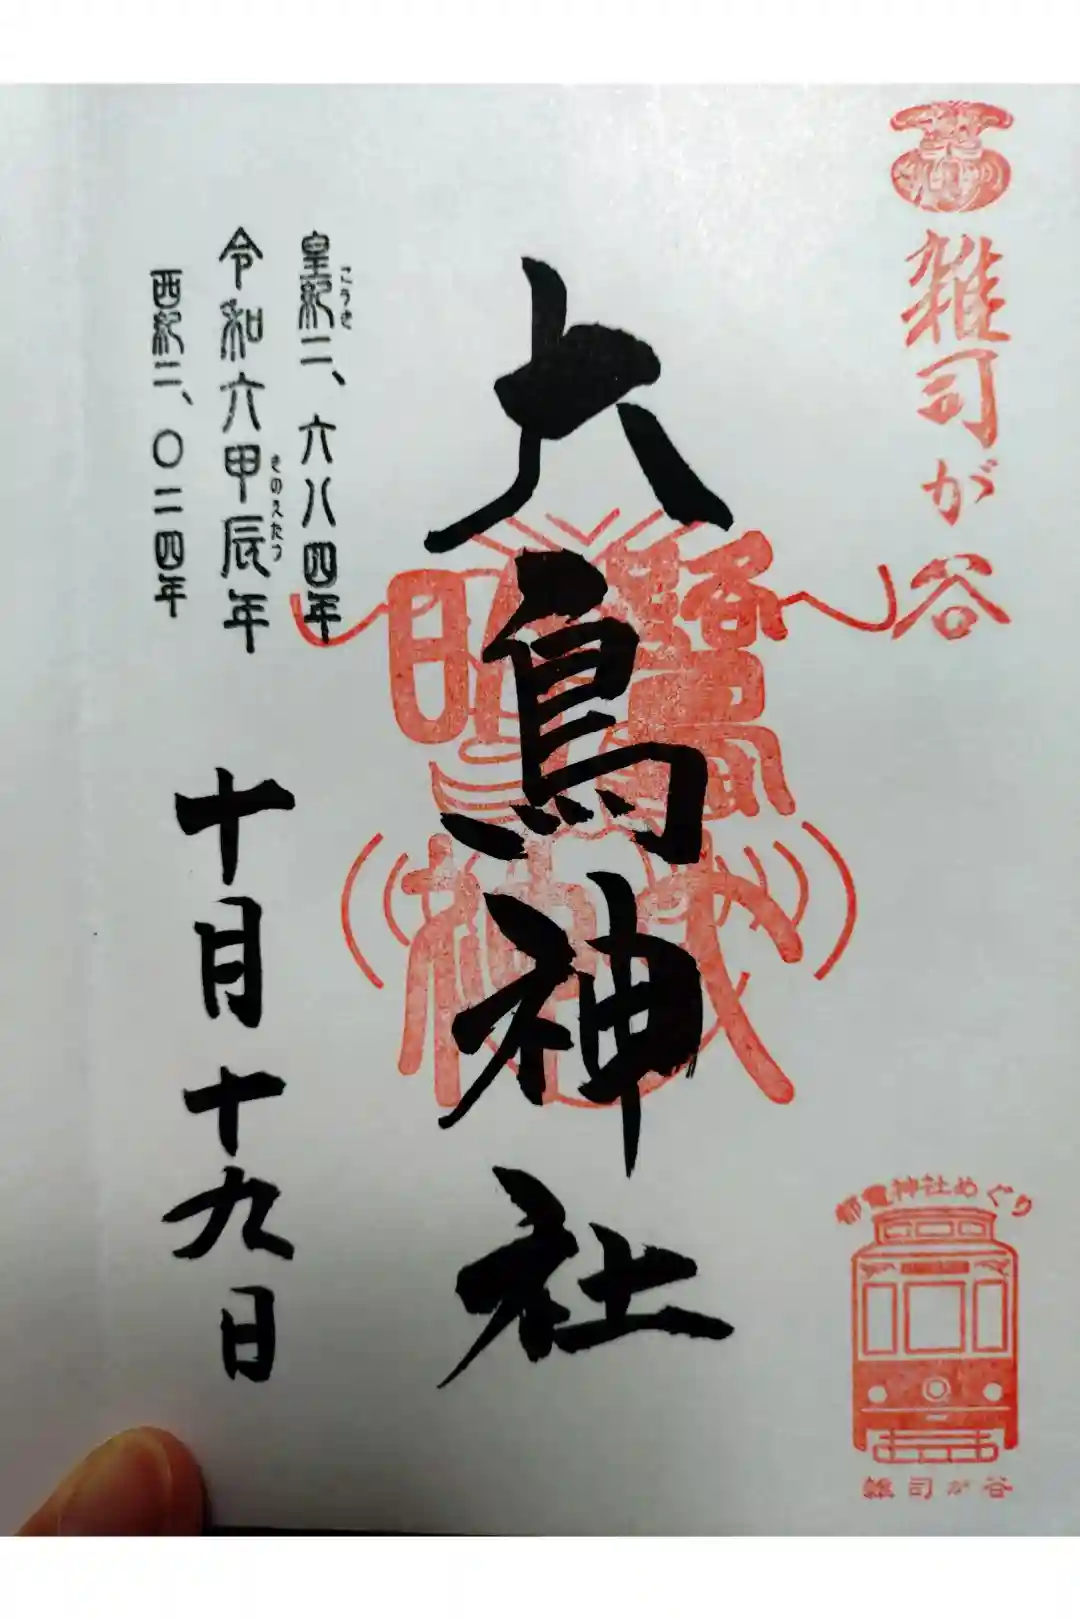 雑司が谷
大鳥神社
皇紀二、六八四年
こうき
令和六甲辰年
きのえたつ
西紀二、〇二四年
十月十九日
都電神社めぐり
雑司が谷